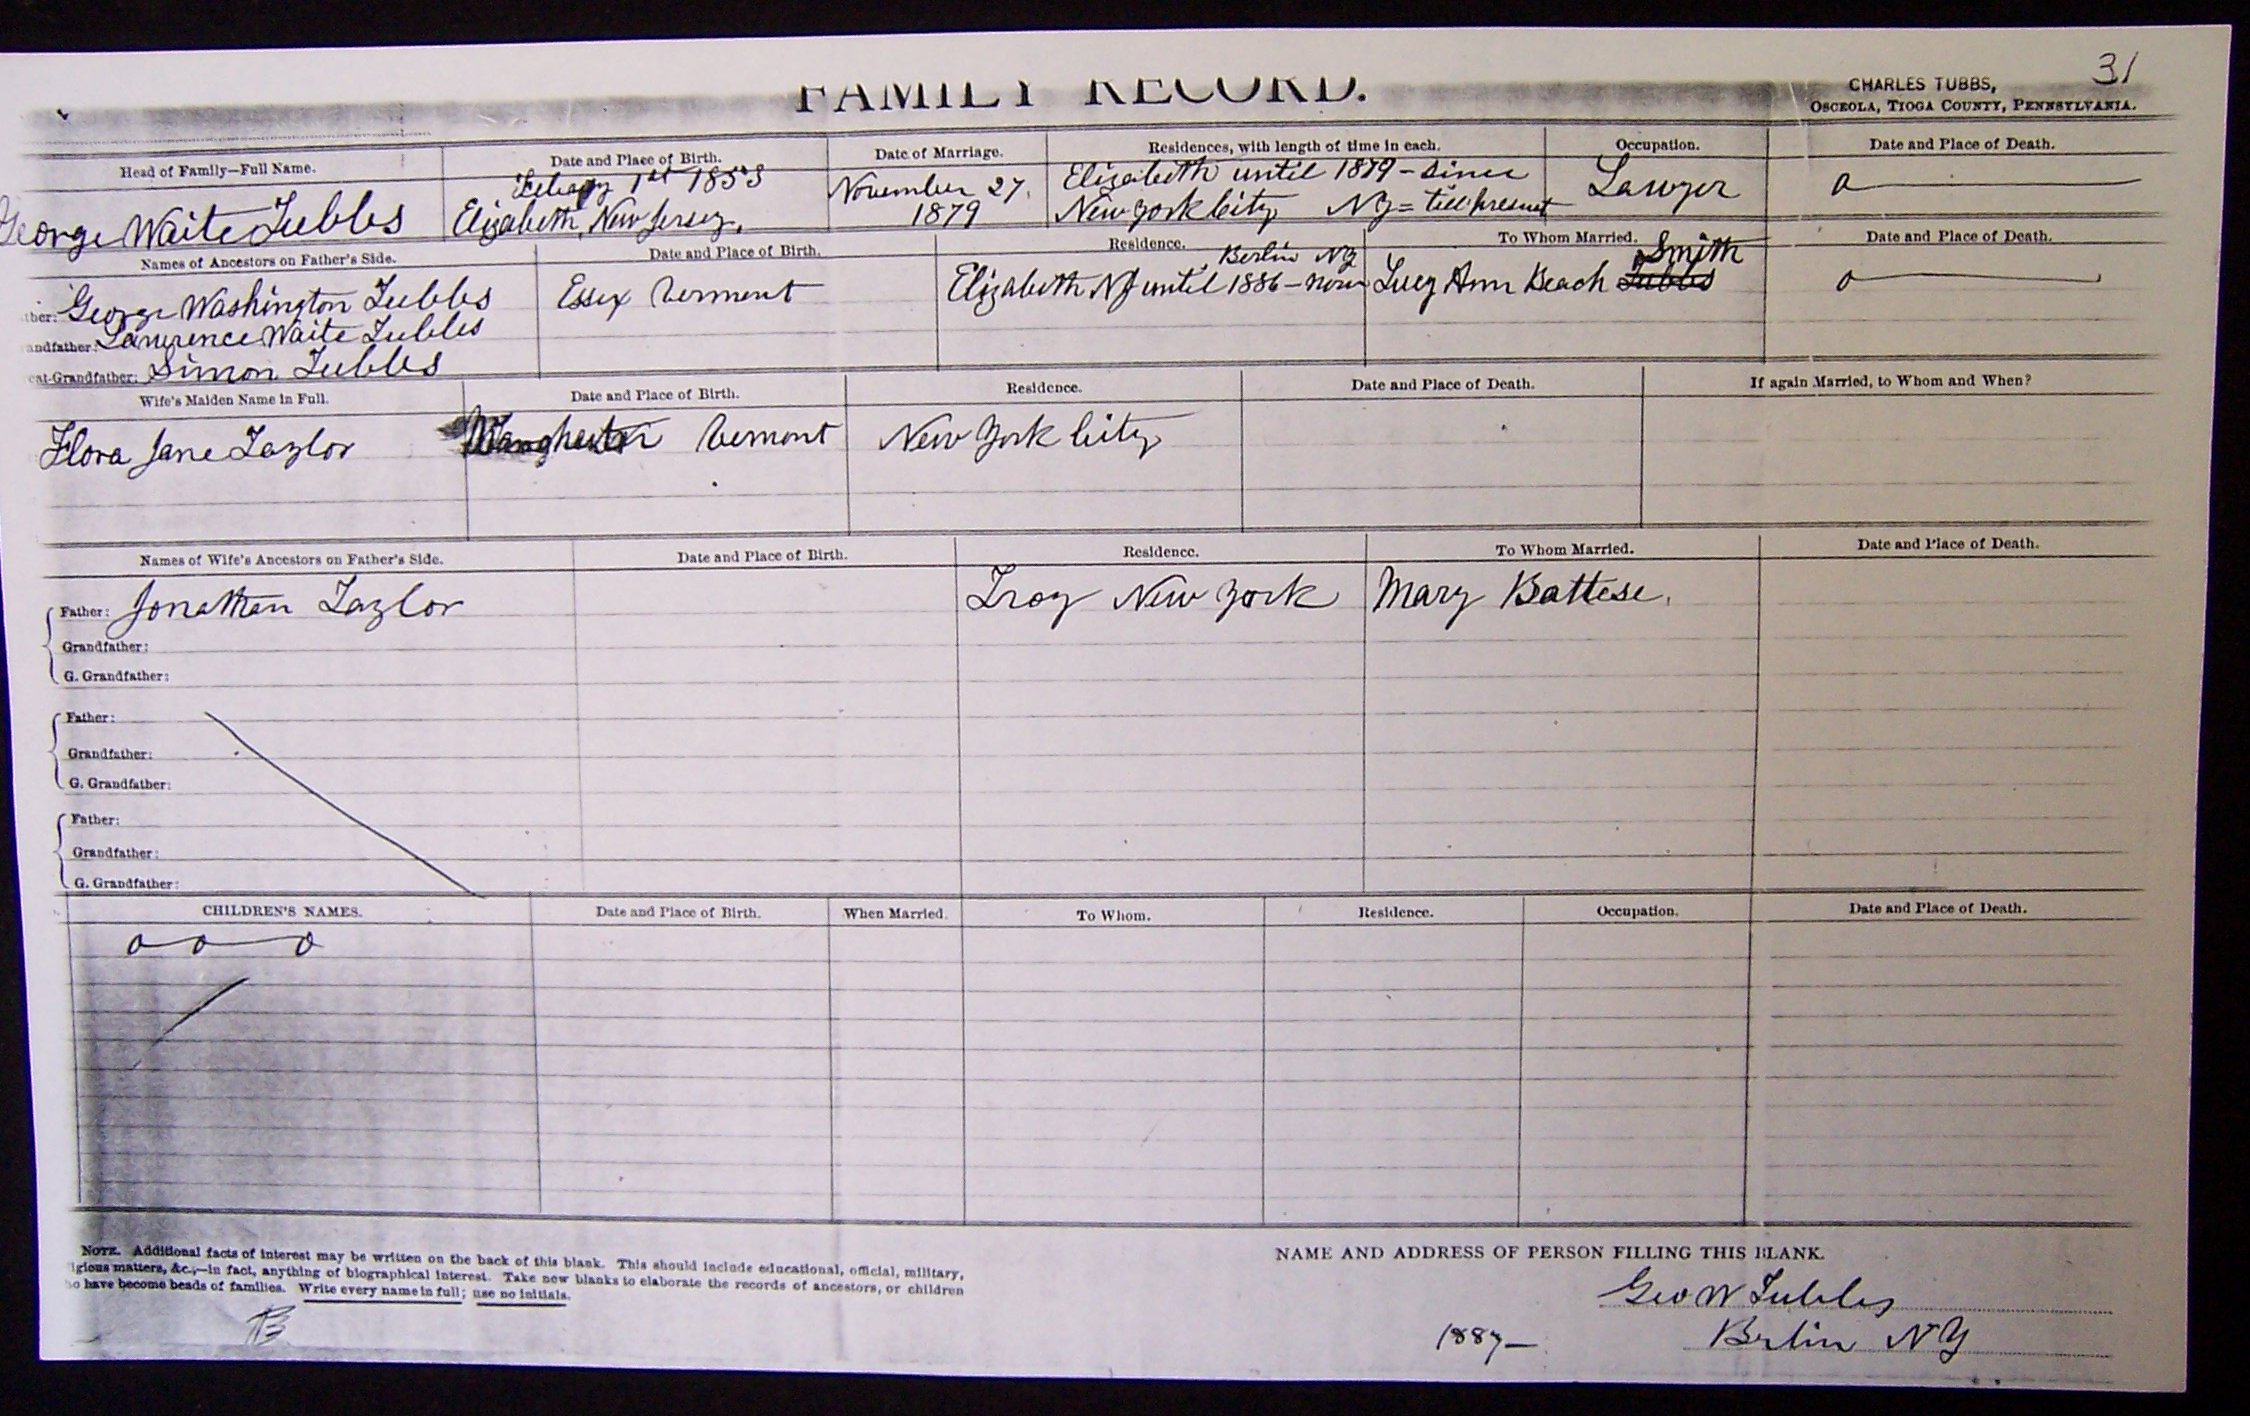 31
FAMILY RECORD.
CHARLES TUBBS,
OSCEOLA, TIOGA COUNTY, PENNSYLVANIA.
Head of Family—Full Name. Date and Place of Birth. Date of Marriage. Residences, with length of time in each. Occupation. Date and Place of Death.
1st 1853 Elizabeth until 1879 - since
George Waite Tubbs Elizabeth, New Jersey. November 27. 1879 New York City NY = till present Lawyer
Names of Ancestors on Father's Side. Date and Place of Birth. Residence. To Whom Married. Date and Place of Death.
Berlin NY Smith
ther: George Washington Tubbs Essex Vermont Elizabeth NJ until 1886 - now Lucy Ann Beach Tubbs
andfather: Lawrence Waite Tubbs
eat-Grandfather: Simon Tubbs
Wife's Maiden Name in Full. Date and Place of Birth. Residence. Date and Place of Death. If again Married, to Whom and When?
Flora Jane Taylor Vermont New York City
Names of Wife's Ancestors on Father's Side. Date and Place of Birth. Residence. To Whom Married. Date and Place of Death.
Father: Jonathan Taylor Troy New York Mary Battese.
Grandfather:
G. Grandfather:
Father:
Grandfather:
G. Grandfather:
Father:
Grandfather:
G. Grandfather:
CHILDREN'S NAMES. Date and Place of Birth. When Married. To Whom. Residence. Occupation. Date and Place of Death.
o o o
NOTE. Additional facts of interest may be written on the back of this blank. This should include educational, official, military,
igious matters, &c.,—in fact, anything of biographical interest. Take new blanks to elaborate the records of ancestors, or children
o have become heads of families. Write every name in full; use no initials.
NAME AND ADDRESS OF PERSON FILLING THIS BLANK.
Geo W Tubbs
1887— Berlin NY